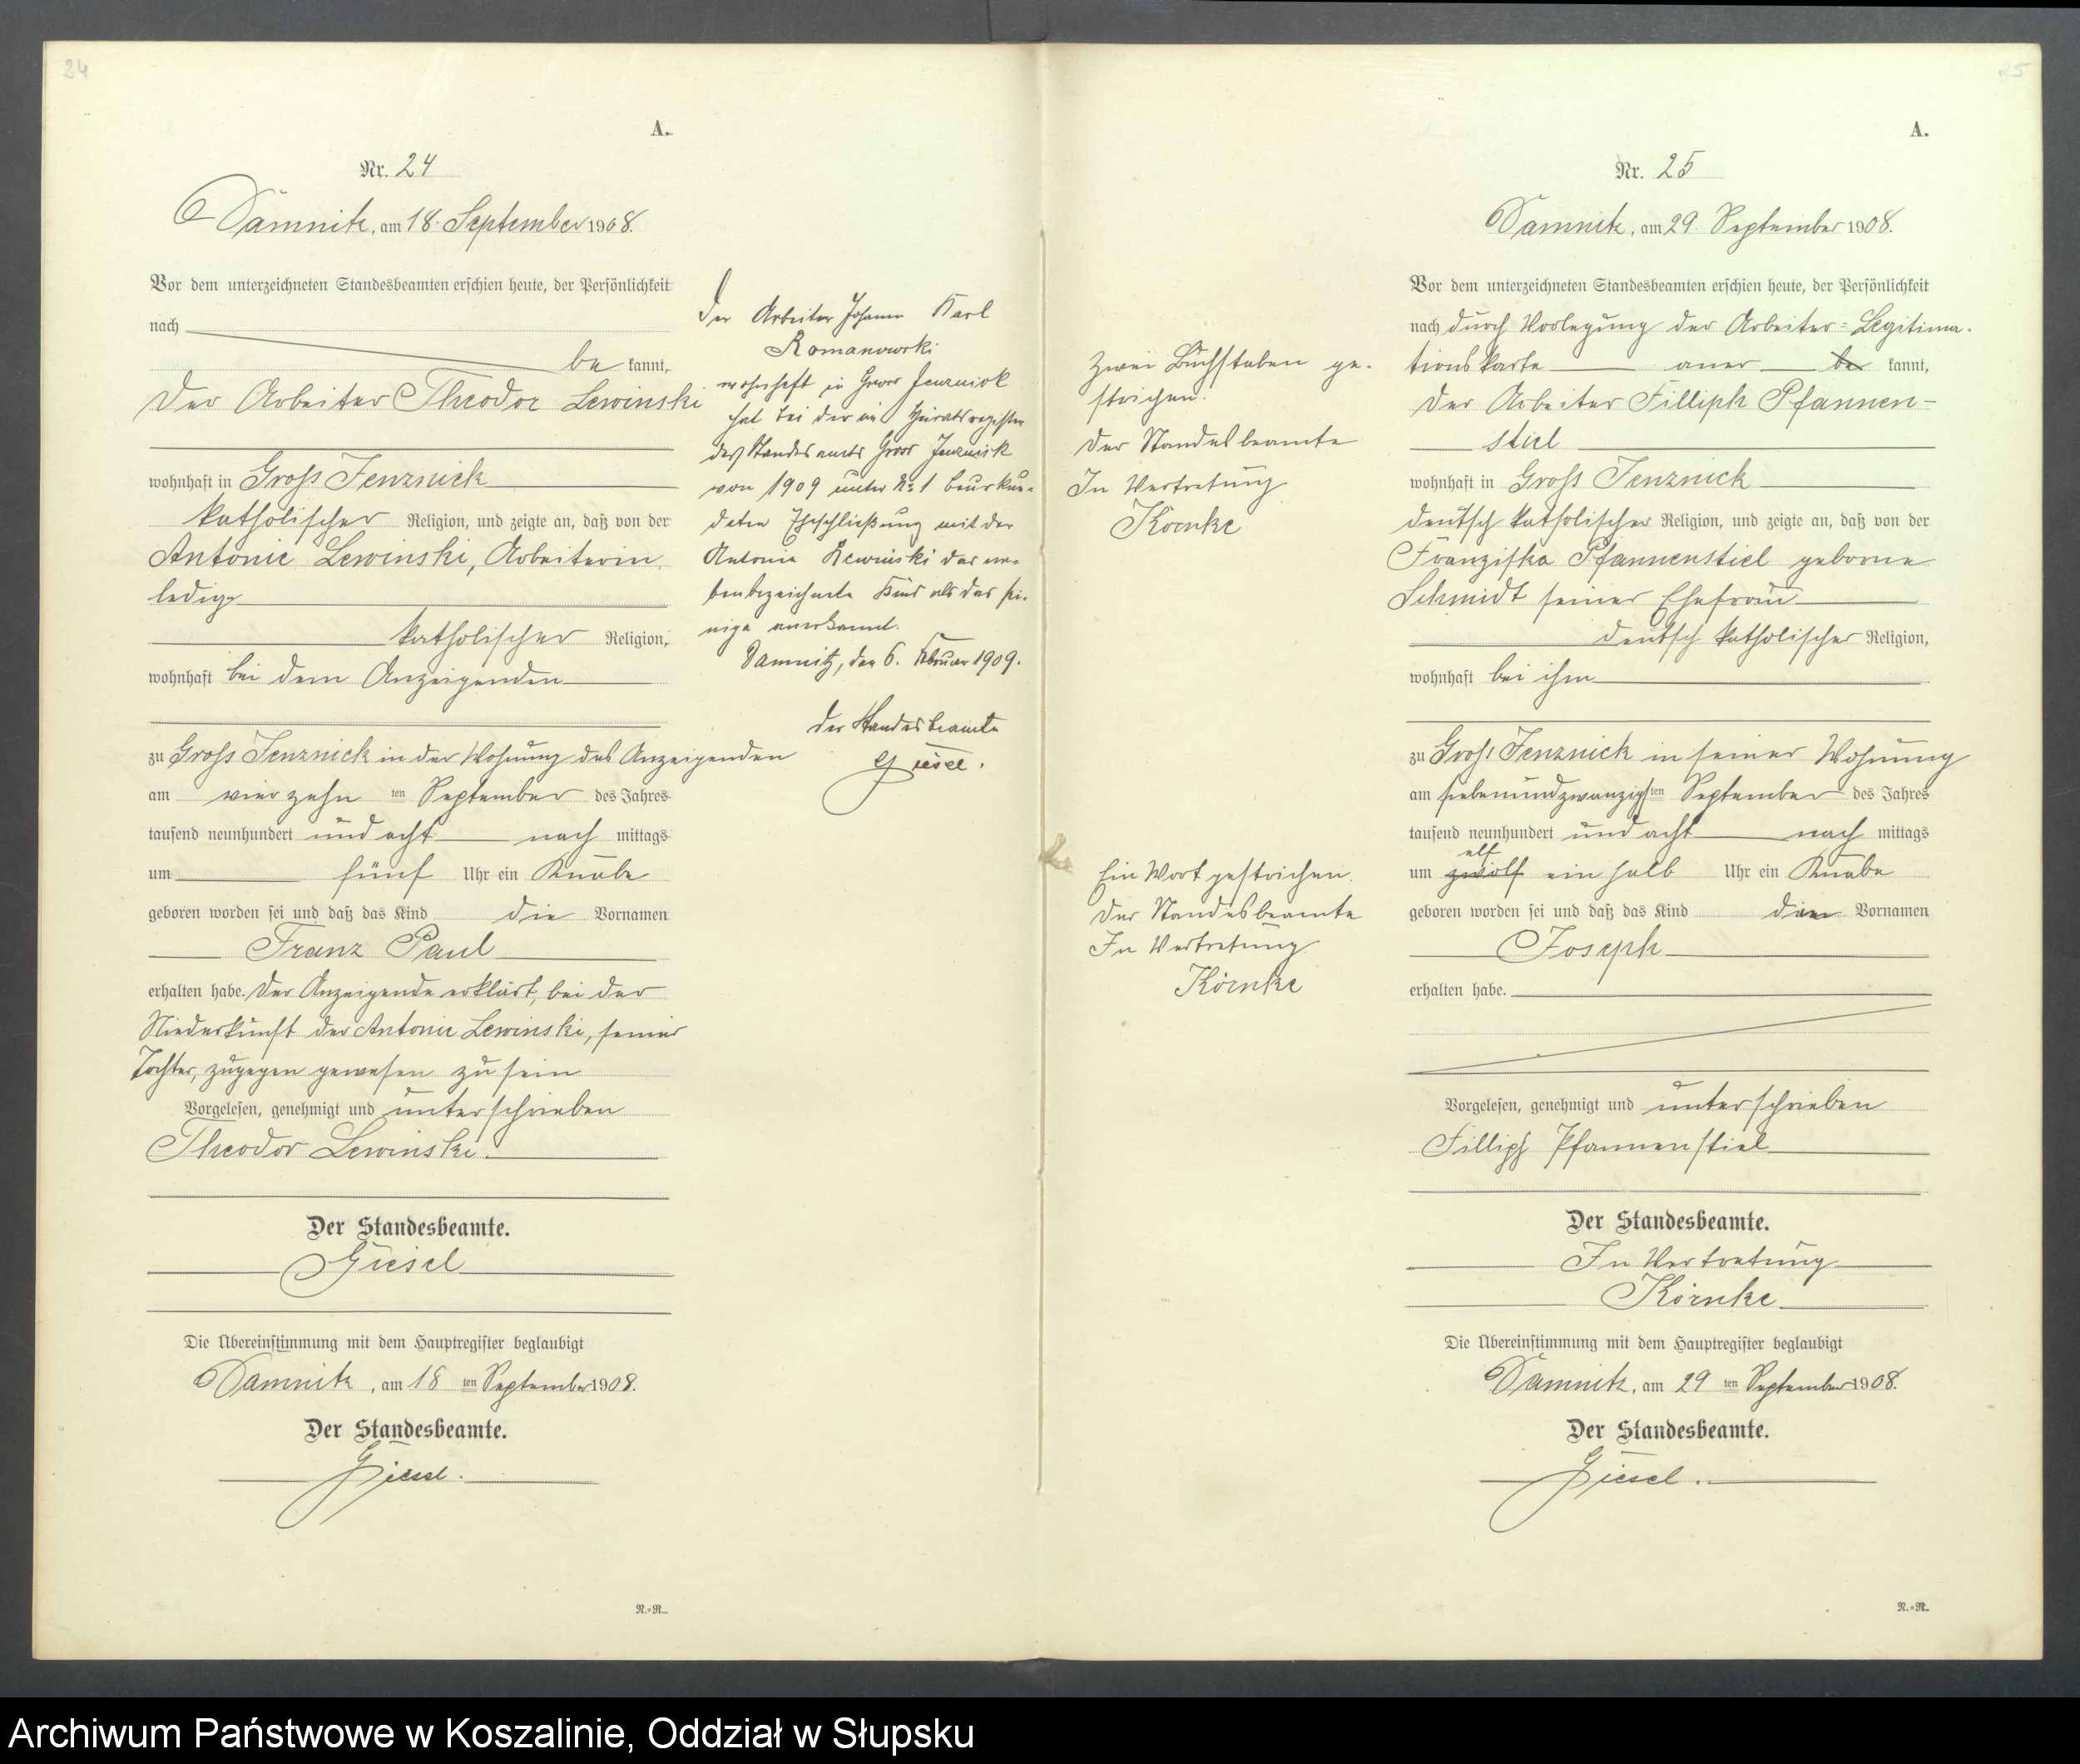 24
A.
Nr. 24
Damnitz, am 18. September 1908.
Vor dem unterzeichneten Standesbeamten erschien heute, der Persönlichkeit
nach
be kannt,
der Arbeiter Theodor Lewinski
wohnhaft in Gross Jenznick
katholischer Religion, und zeigte an, daß von der
Antonie Lewinski, Arbeiterin,
ledig
katholischer Religion,
wohnhaft bei dem Anzeigenden
zu Gross Jenznick in der Wohnung des Anzeigenden
am vierzehn ten September des Jahres
tausend neunhundert und acht nach mittags
um fünf Uhr ein Knabe
geboren worden sei und daß das Kind die Vornamen
Franz Paul
erhalten habe. Der Anzeigende erklärt, bei der
Niederkunft der Antonie Lewinski, seiner
Tochter, zugegen gewesen zu sein
Vorgelesen, genehmigt und unterschrieben
Theodor Lewinski
Der Standesbeamte.
Giesel
Die Übereinstimmung mit dem Hauptregister beglaubigt
Damnitz, am 18 ten September 1908.
Der Standesbeamte.
Giesel.
N.=R.
Der Arbeiter Johann Karl
Romanowski
wohnhaft in Gross Jenznick
hat bei der im Heiratsregister
des Standesamts Gross Jenznick
von 1909 unter No 1 beurkun-
deten Eheschließung mit der
Antonie Lewinski das ne-
benbezeichnete Kind als das sei-
nige anerkannt.
Damnitz, den 6. Februar 1909.
Der Standesbeamte
Giesel.
25
A.
Nr. 25
Damnitz, am 29. September 1908.
Vor dem unterzeichneten Standesbeamten erschien heute, der Persönlichkeit
nach durch Vorlegung der Arbeiter=Legitima-
tionskarte aner be kannt,
der Arbeiter Filliph Pfannen-
stiel
wohnhaft in Gross Jenznick
deutsch katholischer Religion, und zeigte an, daß von der
Franziska Pfannenstiel geborne
Schmidt seiner Ehefrau
deutsch katholischer Religion,
wohnhaft bei ihm
zu Gross Jenznick in seiner Wohnung
am siebenundzwanzigsten September des Jahres
tausend neunhundert und acht nach mittags
elf
um zwölf ein halb Uhr ein Knabe
geboren worden sei und daß das Kind den Vornamen
Joseph
erhalten habe.
Vorgelesen, genehmigt und unterschrieben
Filliph Pfannenstiel
Der Standesbeamte.
In Vertretung
Körnke
Die Übereinstimmung mit dem Hauptregister beglaubigt
Damnitz, am 29 ten September 1908.
Der Standesbeamte.
Giesel.
N.=R.
Zwei Buchstaben ge-
strichen.
Der Standesbeamte
In Vertretung
Körnke
Ein Wort gestrichen.
Der Standesbeamte
In Vertretung
Körnke
Archiwum Państwowe w Koszalinie, Oddział w Słupsku